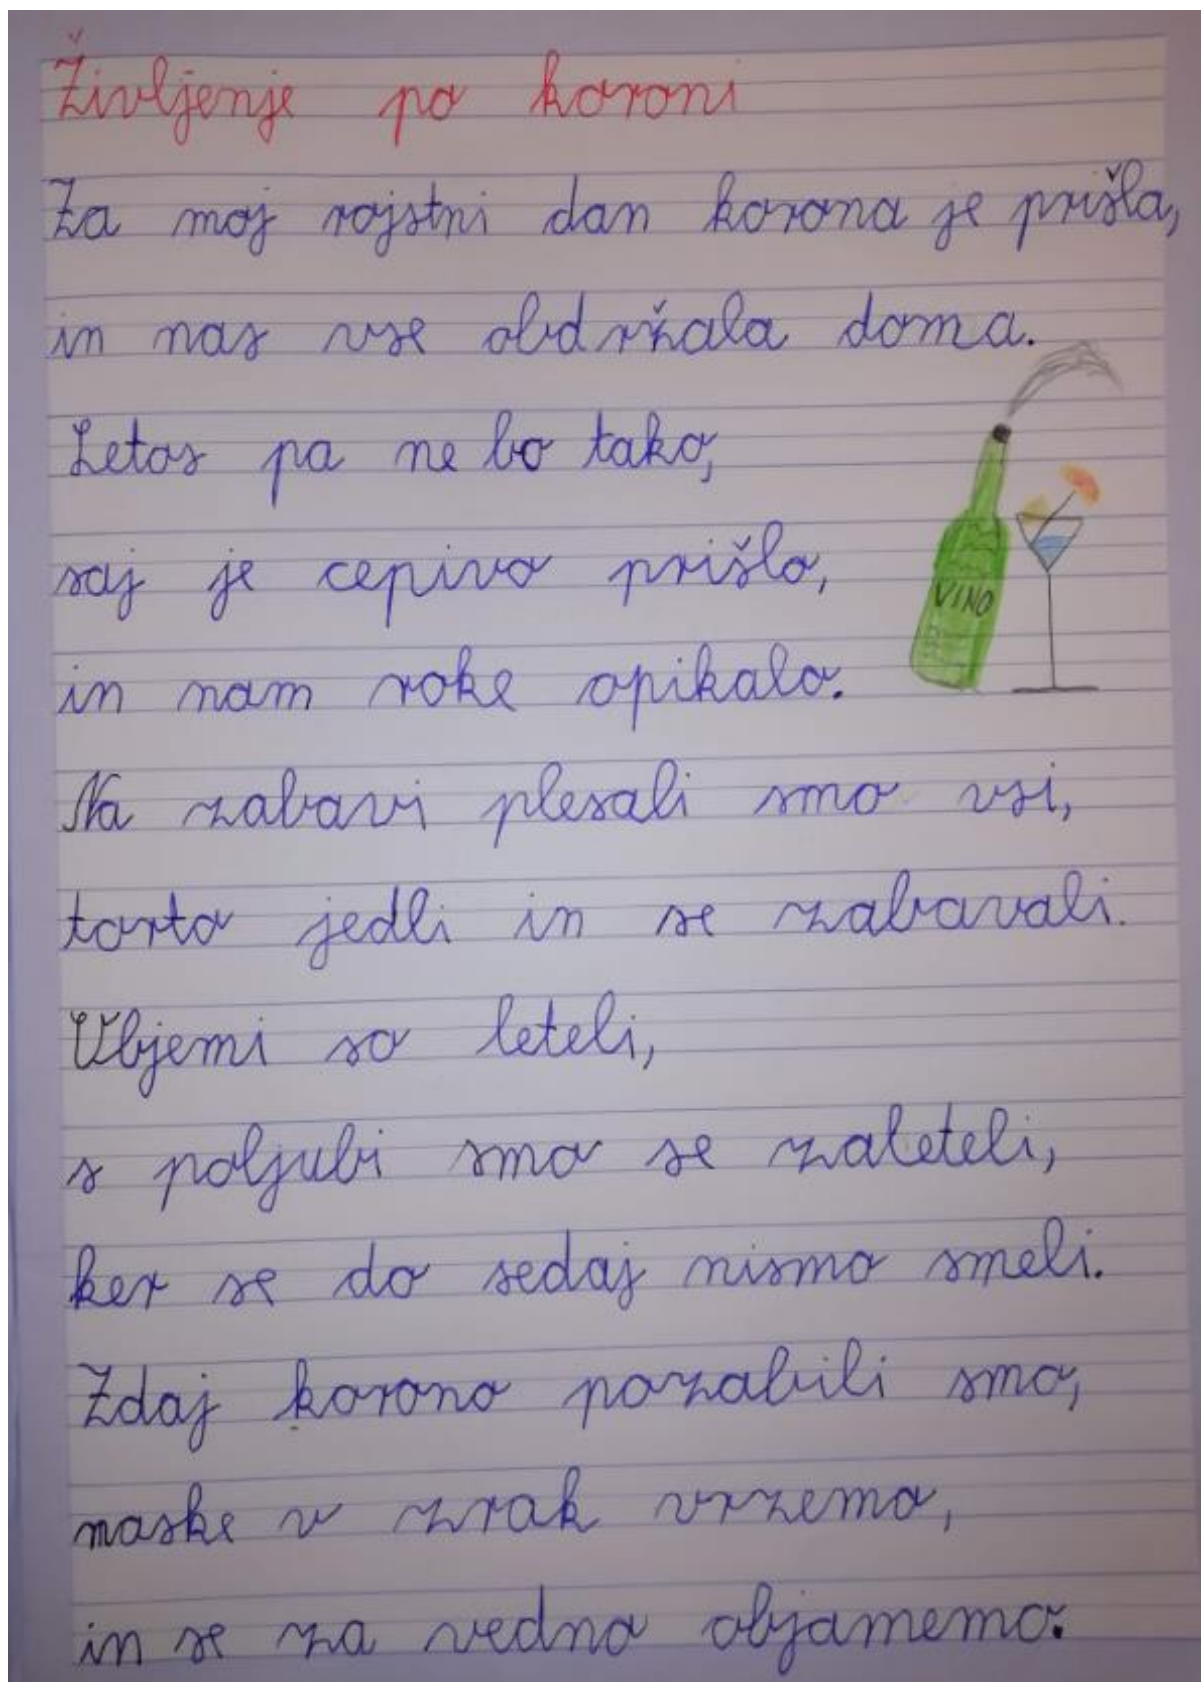 Življenje po koroni
Za moj rojstni dan korona je prišla,
in nas vse obdržala doma.
Letos pa ne bo tako,
saj je cepivo prišlo,
VINO
in nam roke opikalo.
Na zabavi plesali smo vsi,
torto jedli in se zabavali.
Objemi so leteli,
s poljubi smo se zaleteli,
ker se do sedaj nismo smeli.
Zdaj korono pozabili smo,
maske v zrak vrzemo,
in se za vedno objamemo.